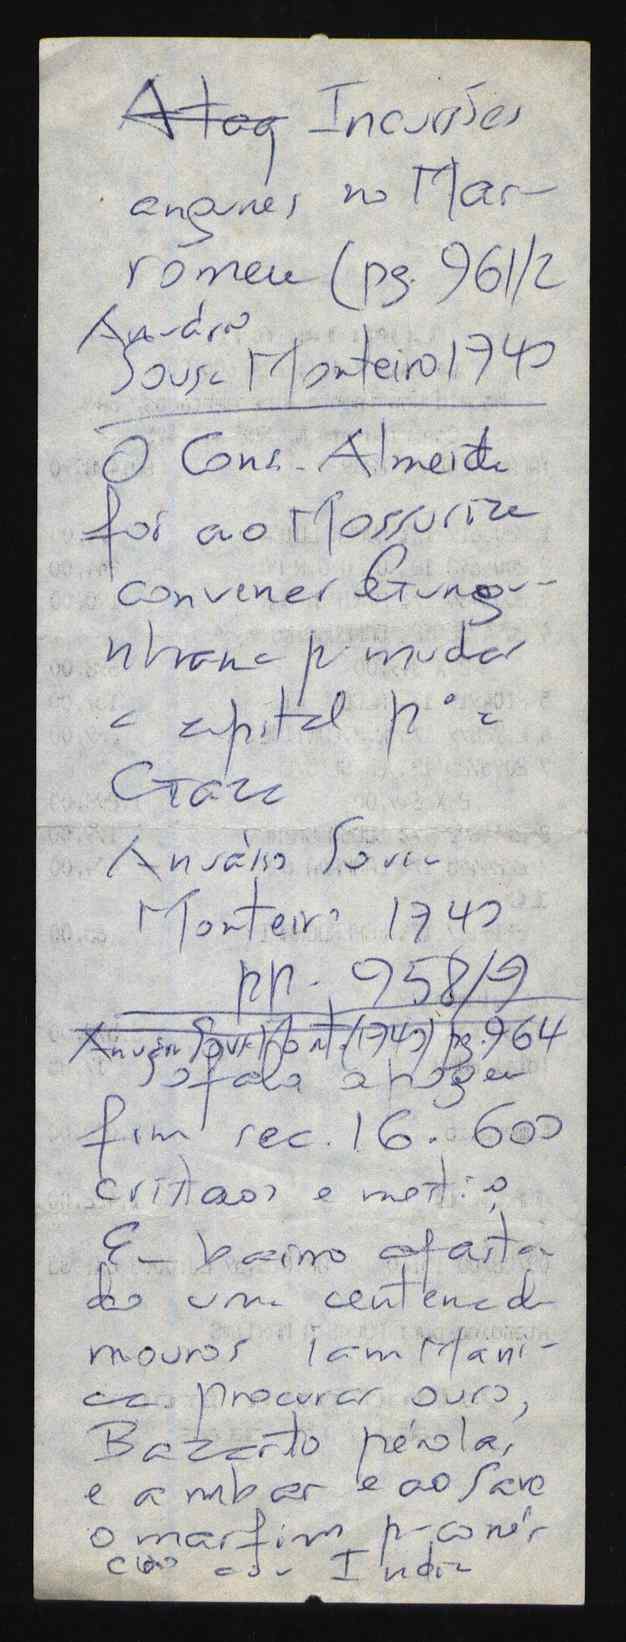 ~~Ataq~~ Incursões
angunes no Mar-
romeu (pg. 961/2
Anuário
Sousa Monteiro 1740
O Cons. Almeida
foi ao Mossurize
convencer Gungu-
nhana p. mudar
a capital pª a
Gaza
Anuário Sousa
Monteiro 1740
pp. 958/9
Anuário Sousa Mont. (1740) pg. 964
Sofala apogeu
fim sec. 16. 600
cristaos e mesti
Em bairro afasta-
do uma centena de
mouros iam Mani-
ca procurar ouro,
Bazaruto pérolas
e ambar e ao Save
o marfim p comér
cio com India